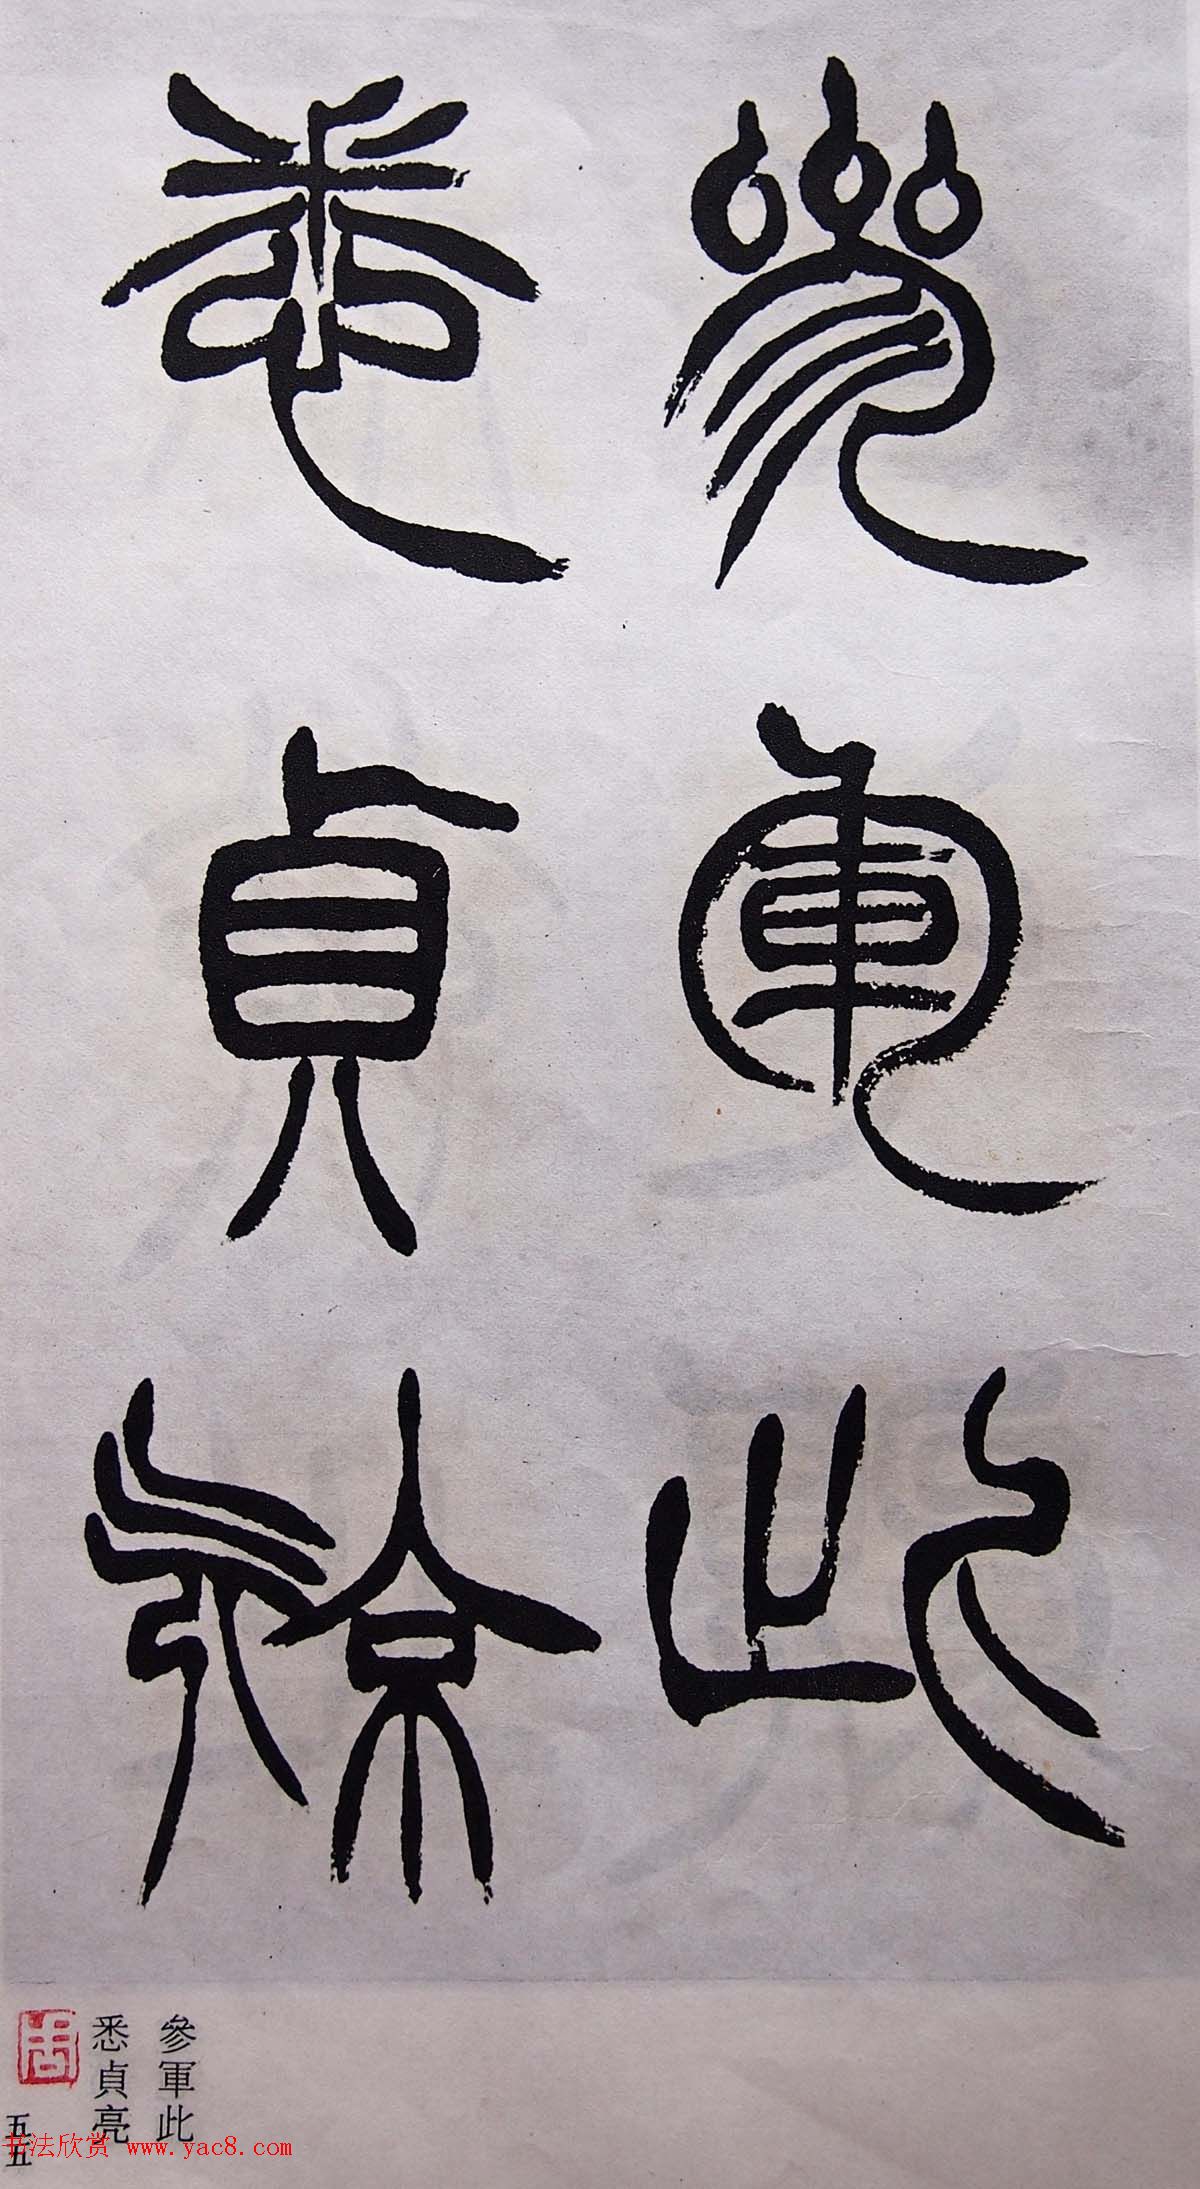 參軍此
悉貞亮
參軍此
悉貞亮
五五
书法欣赏 www.yac8.com